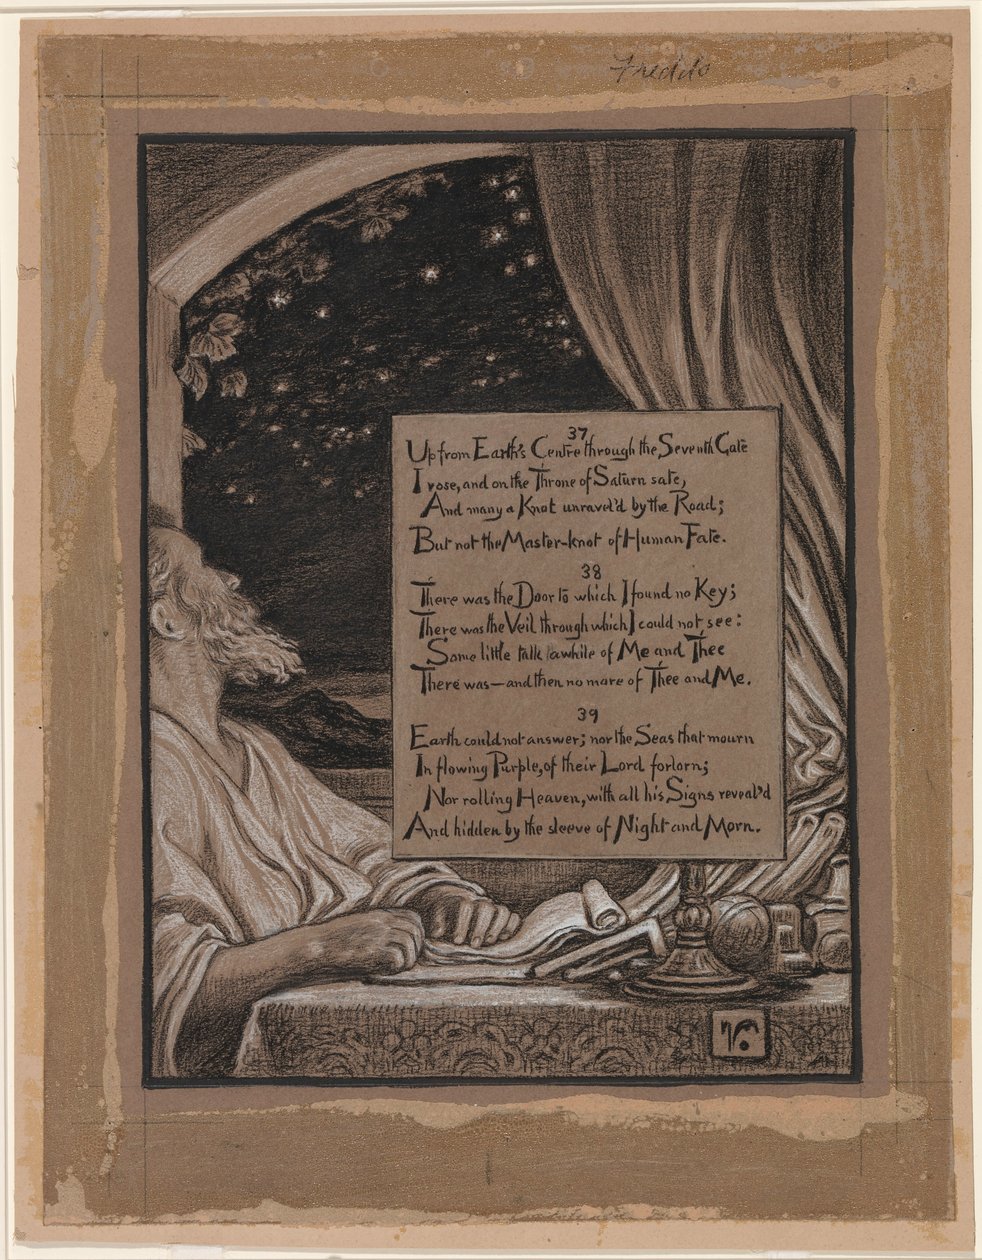 Freddo
37
Up from Earth's Centre through the Seventh Gate
I rose, and on the Throne of Saturn sate,
And many a Knot unravel'd by the Road;
But not the Master-knot of Human Fate.
38
There was the Door to which I found no Key;
There was the Veil through which I could not see:
Some little talk awhile of Me and Thee
There was—and then no more of Thee and Me.
39
Earth could not answer; nor the Seas that mourn
In flowing Purple, of their Lord forlorn;
Nor rolling Heaven, with all his Signs reveal'd
And hidden by the sleeve of Night and Morn.